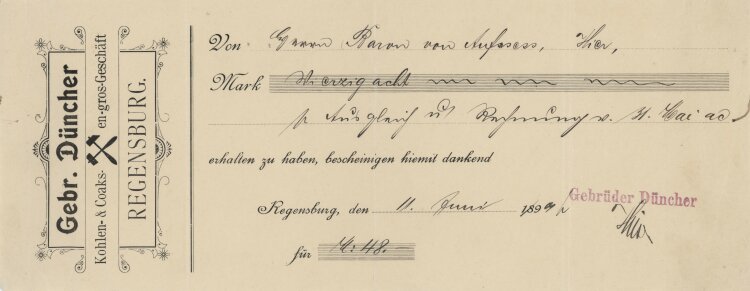 Gebr. Düncher
Kohlen- & Coaks- en-gros-Geschäft
REGENSBURG.
Von Herrn Baron von Aufsess, Hier,
Mark Vierzigacht
p Ausgleich u/ Rechnung v. 31. Mai ac.
erhalten zu haben, bescheinigen hiemit dankend
Regensburg, den 11. Juni 1899
Gebrüder Düncher
für M: 48.—